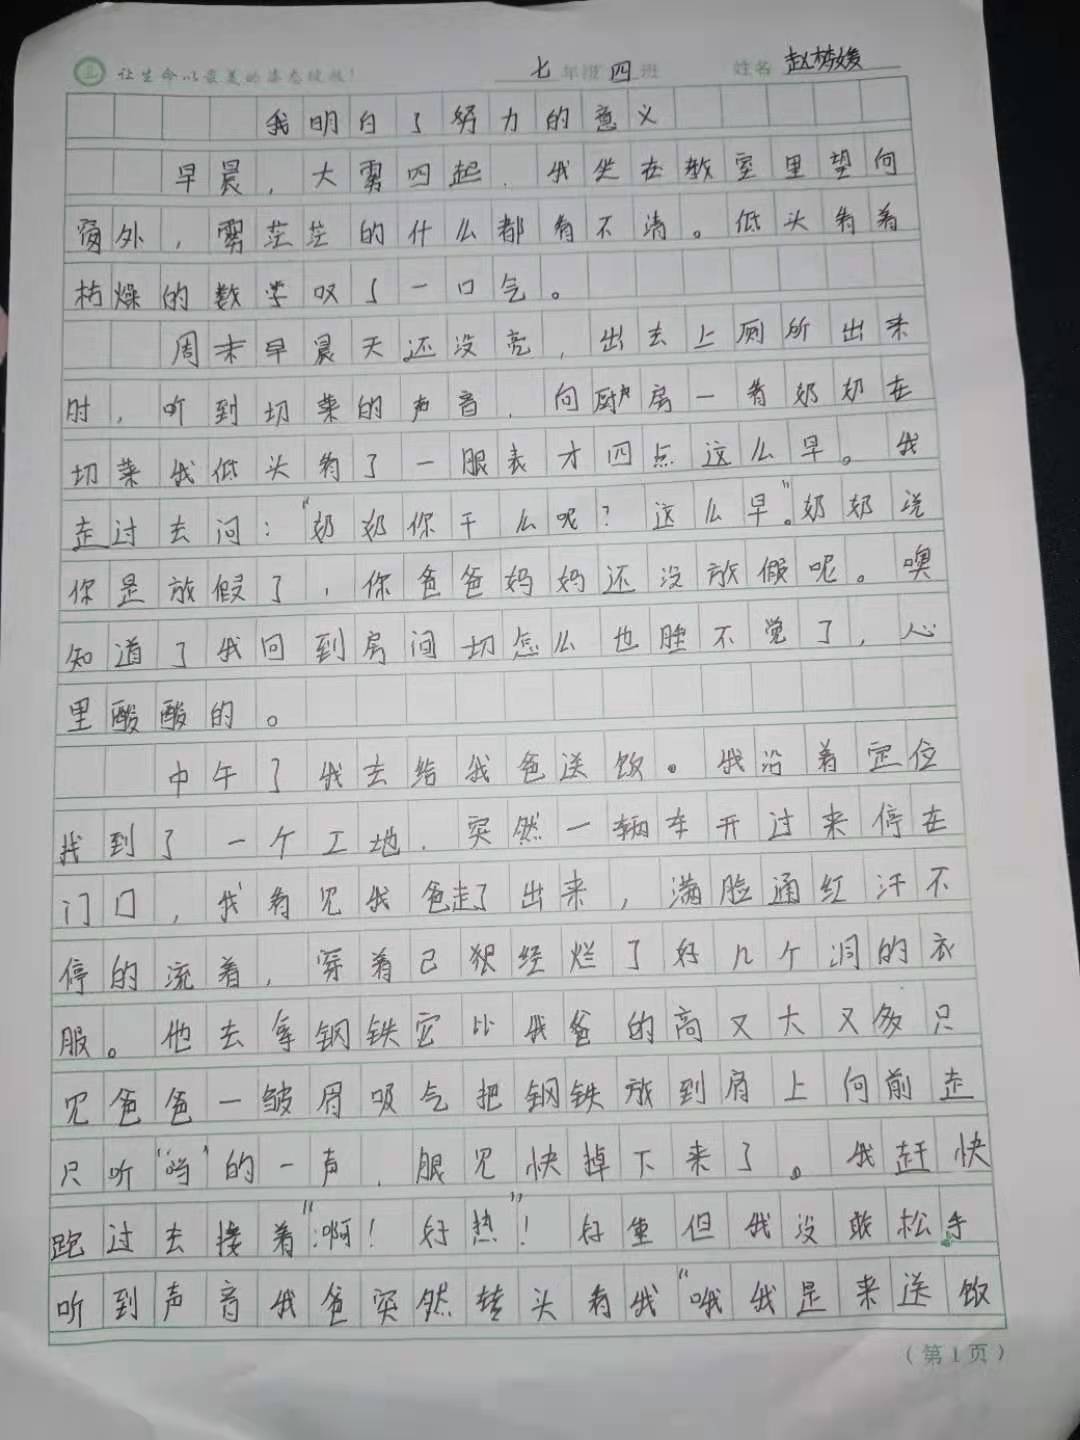 让生命以最美的姿态绽放！ 七年级四班 姓名 赵梦媛
我明白了努力的意义
早晨，大雾四起，我坐在教室里望向
窗外，雾茫茫的什么都看不清。低头看着
枯燥的数学叹了一口气。
周末早晨天还没亮，出去上厕所出来
时，听到切菜的声音，向厨房一看奶奶在
切菜我低头看了一眼表才四点这么早。我
走过去问："奶奶你干么呢？这么早。"奶奶说
你是放假了，你爸爸妈妈还没放假呢。噢
知道了我回到房间切怎么也睡不觉了，心
里酸酸的。
中午了我去给我爸送饭。我沿着定位
找到了一个工地，突然一辆车开过来停在
门口，我看见我爸走了出来，满脸通红汗不
停的流着，穿着已狠经烂了好几个洞的衣
服。他去拿钢铁它比我爸的高又大又多只
见爸爸一皱眉吸气把钢铁放到肩上向前走
只听"当"的一声，眼见快掉下来了。我赶快
跑过去接着"：啊！好热"！好重但我没敢松手
听到声音我爸突然转头看我"哦我是来送饭
（第1页）